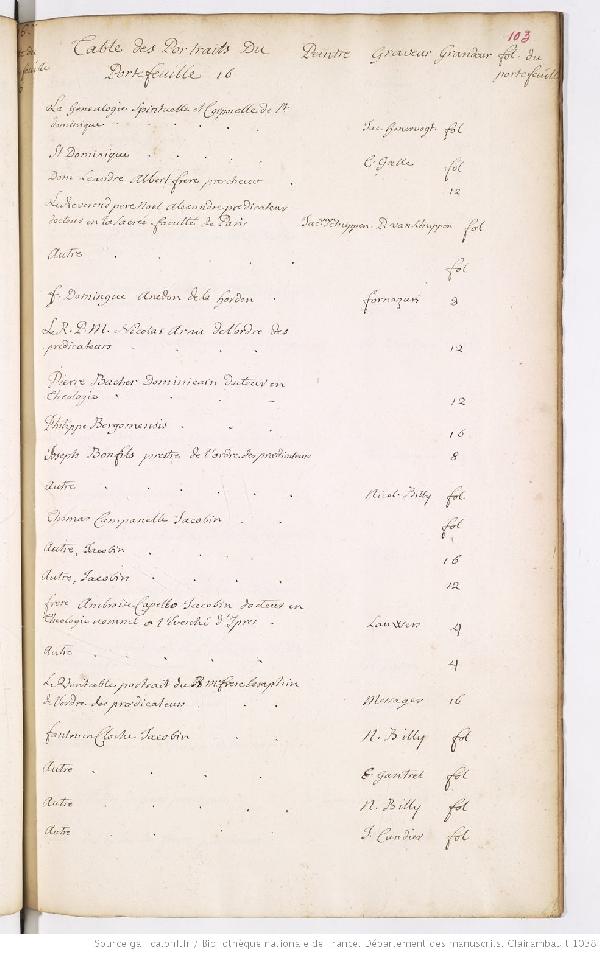 103
Table des Portraits Du Peintre Graveur Grandeur fol. du
Portefeuille 16 portefeuille
La Genealogie Spirituelle et Corporelle de St
dominique fol
St Dominique C. Galle fol
Dom Leandre Albert frere precheur 12
Le Reverend pere Noel Alexandre predicateur
docteur en la Sacrée faculté de Paris Jac. van Schuppen P. van Schuppen fol
Autre fol
f. Domingue Anedon de la horden fornazeri 8
Le R. P. M. Nicolas Arnu de l'ordre des
predicateurs 12
Pierre Bacher Dominicain Docteur en
Theologie 12
Philippe Bergomensis 16
Joseph Bonfils prestre de l'ordre des predicateurs 8
Autre Nicol. Billy fol
Thomas Campanella Jacobin fol
Autre, Jacobin 16
Autre, Jacobin 12
frere Ambroise Capello Jacobin docteur en
Theologie nommé a l'Evesché d'Ypres Lauwers 4
Autre 4
Le Veritable portrait du frere
de l'ordre des predicateurs Menager 16
Cloche Jacobin N. Billy fol
Autre E. Gantrel fol
Autre N. Billy fol
Autre J. Cundier fol
Source gallica.bnf.fr / Bibliothèque nationale de France. Département des manuscrits. Clairambault 1038